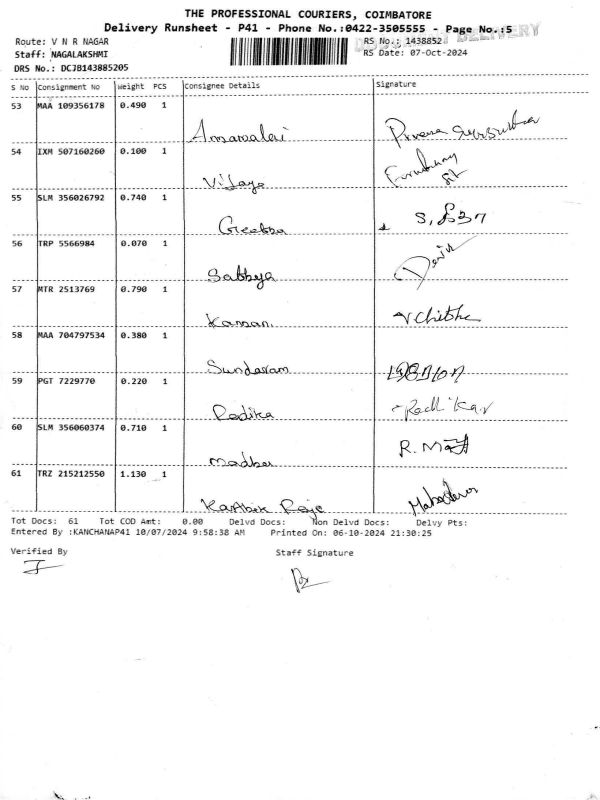 THE PROFESSIONAL COURIERS, COIMBATORE
Delivery Runsheet - P41 - Phone No.:0422-3505555 - Page No.:5
DELIVERY
Route: V N R NAGAR RS No.: 1438852
Staff: NAGALAKSHMI RS Date: 07-Oct-2024
DRS No.: DCJB143885205
S No Consignment No Weight PCS Consignee Details Signature
53 MAA 109356178 0.490 1
Annamalai Praveena
54 IXM 507160260 0.100 1
Vijaya
55 SLM 356026792 0.740 1
Geetha S,
56 TRP 5566984 0.070 1
Sathya
57 MTR 2513769 0.790 1
Kannan V Chitha
58 MAA 704797534 0.380 1
Sundaram
59 PGT 7229770 0.220 1
Radika Radhikav
60 SLM 356060374 0.710 1
Madhav R.
61 TRZ 215212550 1.130 1
Karthik Raje
Tot Docs: 61 Tot COD Amt: 0.00 Delvd Docs: Non Delvd Docs: Delvy Pts:
Entered By :KANCHANAP41 10/07/2024 9:58:38 AM Printed On: 06-10-2024 21:30:25
Verified By Staff Signature